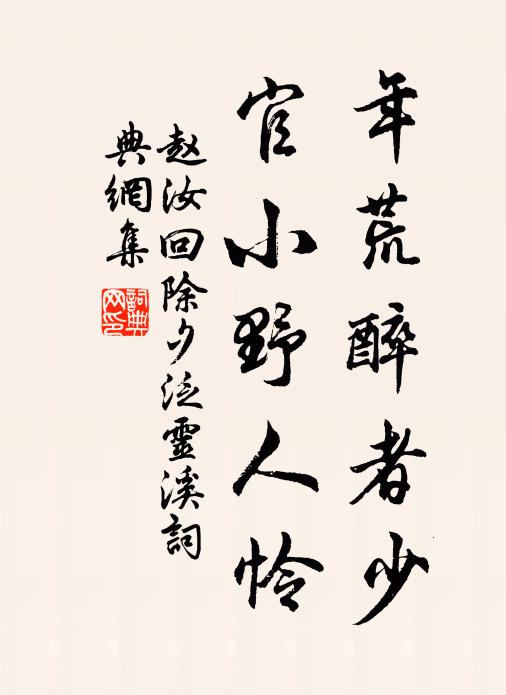 年荒醉者少
官小野人怜
赵汝回除夕泛靈溪詞
典網集
詞典網印